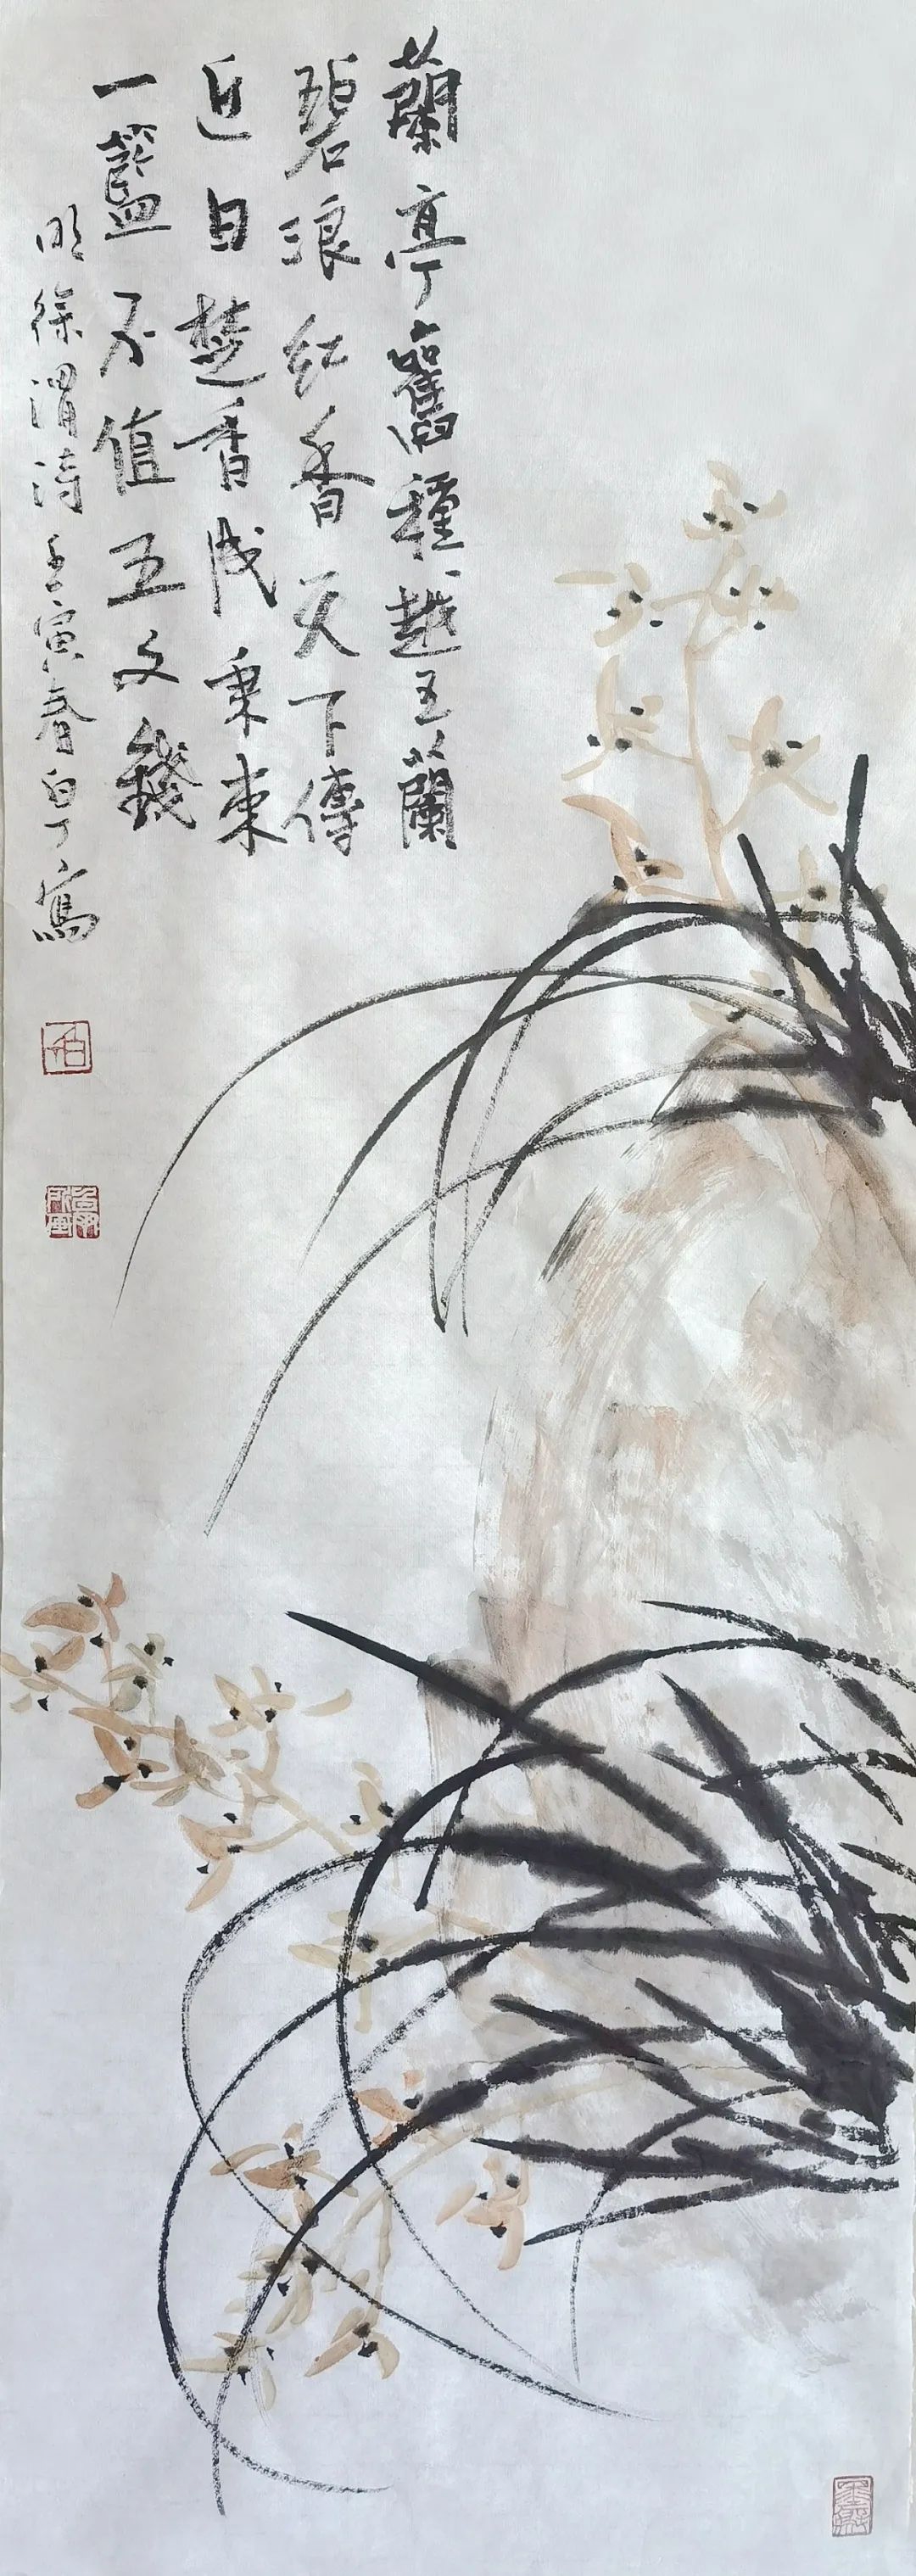 蘭亭舊種越王蘭
碧浪紅香天下傳
近日楚香成秉束
一籃不值五文錢
明徐渭詩壬寅春白丁寫